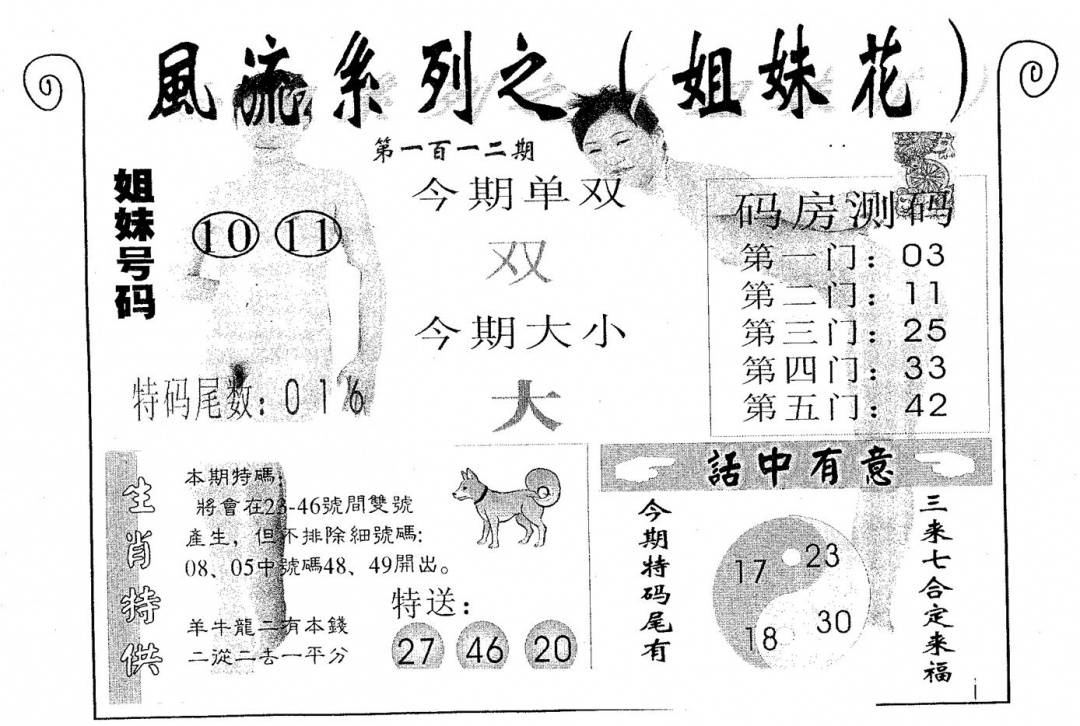 風流系列之（姐妹花）
第一百一二期
姐妹号码
10 11
特码尾数：016
今期单双
双
今期大小
大
码房测码
第一门：03
第二门：11
第三门：25
第四门：33
第五门：42
生肖特供
本期特碼：
將會在23-46號間雙號
產生，但不排除細號碼：
08、05中號碼48、49開出。
羊牛龍二有本錢
二從二去一平分
特送：
27 46 20
話中有意
今期特码尾有
17 23
18 30
三来七合定来福